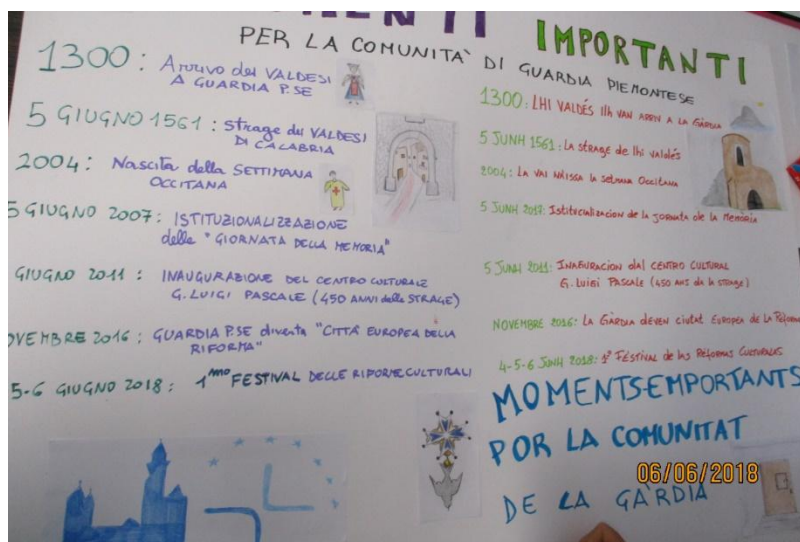 IMPORTANTI
PER LA COMUNITÀ DI GUARDIA PIEMONTESE
1300: Arrivo dei VALDESI
A GUARDIA P.SE
5 GIUGNO 1561: Strage dei VALDESI
DI CALABRIA
2004: Nascita della SETTIMANA
OCCITANA
5 GIUGNO 2007: ISTITUZIONALIZZAZIONE
della "GIORNATA DELLA MEMORIA"
GIUGNO 2011: INAUGURAZIONE DEL CENTRO CULTURALE
G. LUIGI PASCALE (450 ANNI della STRAGE)
NOVEMBRE 2016; GUARDIA P.SE diventa "CITTÀ EUROPEA DELLA
RIFORMA"
5-6 GIUGNO 2018: 1mo FESTIVAL DELLE RIFORME CULTURALI
1300: LHI VALDÉS Ilh VAN ARRN A LA GÀRDIA
5 JUNH 1561: La strage de lhi valdés
2004: La vai nàissa la setmana Occitana
5 JUNH 2017: Istitucializacion de la jornata de la Memòria
5 JUNH 2011: INAEURACION dal CENTRO CULTURAL
G. LUIGI PASCALE (450 ANS da la strage)
NOVEMBRE 2016: La Gàrdia deven ciutat Europea de la Reforma
4-5-6 JUNH 2018: 1º FESTIVAL de las Reformas CULTURALAS
MOMENTS EMPORTANTS
POR LA COMUNITAT
DE LA GÀRDIA
06/06/2018